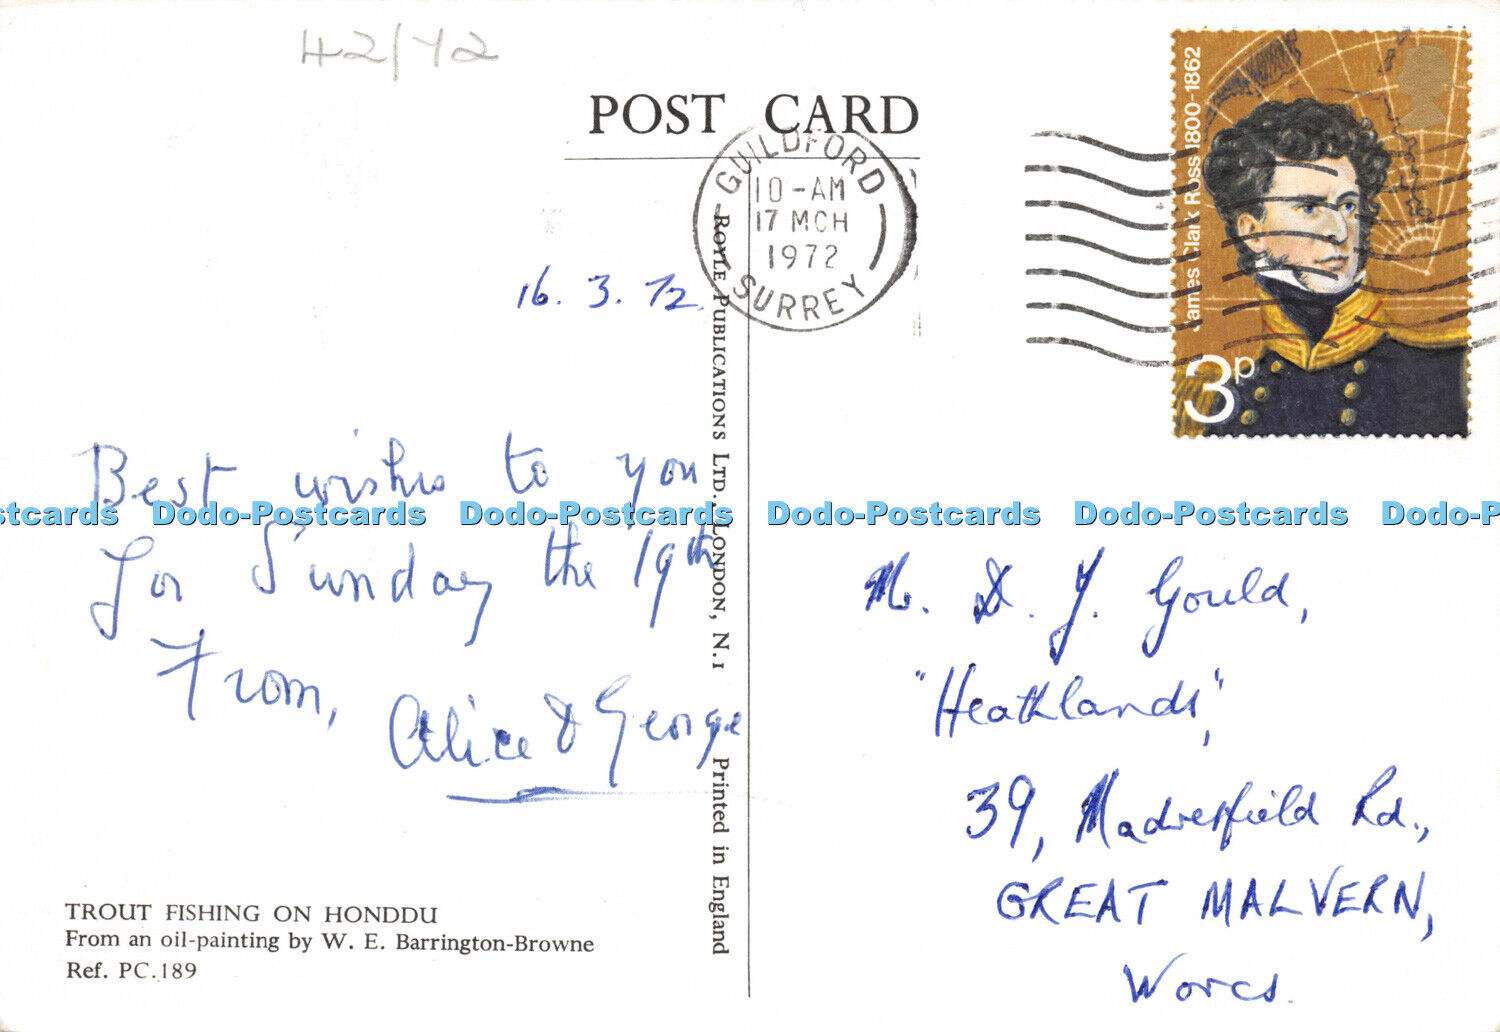 42/72
POST CARD
GUILDFORD
10-AM
17 MCH
1972
SURREY
James Clark Ross 1800-1862
3p
16. 3. 72.
Best wishes to you
for Sunday the 19th
From,
Alice & George
TROUT FISHING ON HONDDU
From an oil-painting by W. E. Barrington-Browne
Ref. PC.189
Royle Publications Ltd., London, N.1 Printed in England
D. J. Gould,
"Heathlands",
39, Madresfield Rd.,
GREAT MALVERN,
Worcs.
Dodo-Postcards Dodo-Postcards Dodo-Postcards Dodo-Postcards